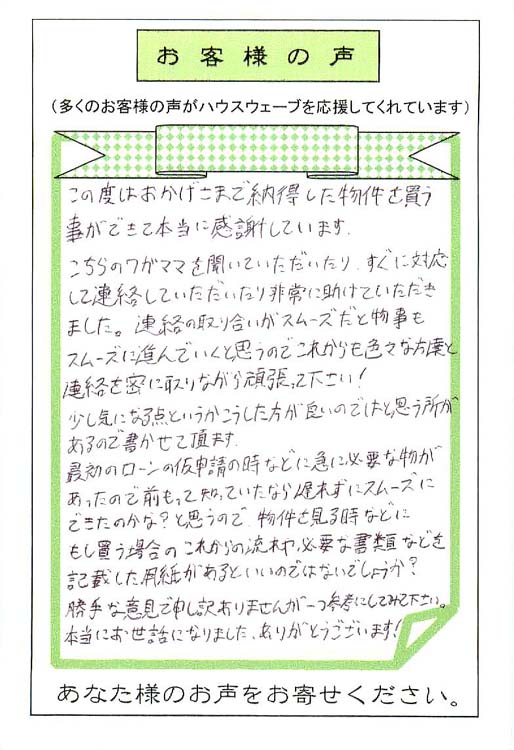 お客様の声
（多くのお客様の声がハウスウェーブを応援してくれています）
この度はおかげさまで納得した物件を買う
事ができて本当に感謝しています.
こちらのワガママを聞いていただいたり、すぐに対応
して連絡していただいたり非常に助けていただき
ました。連絡の取り合いがスムーズだと物事も
スムーズに進んでいくと思うのでこれからも色々な方達と
連絡を密に取りながら頑張って下さい!
少し気になる点というかこうした方が良いのではと思う所が
あるので書かせて頂ます.
最初のローンの仮申請の時などに急に必要な物が
あったので前もって知っていたなら遅れずにスムーズに
できたのかな?と思うので、物件を見る時などに
もし買う場合のこれからの流れや必要な書類などを
記載した用紙があるといいのではないでしょうか?
勝手な意見で申し訳ありませんが一つ参考にしてみて下さい。
本当にお世話になりました、ありがとうございます!
あなた様のお声をお寄せください。